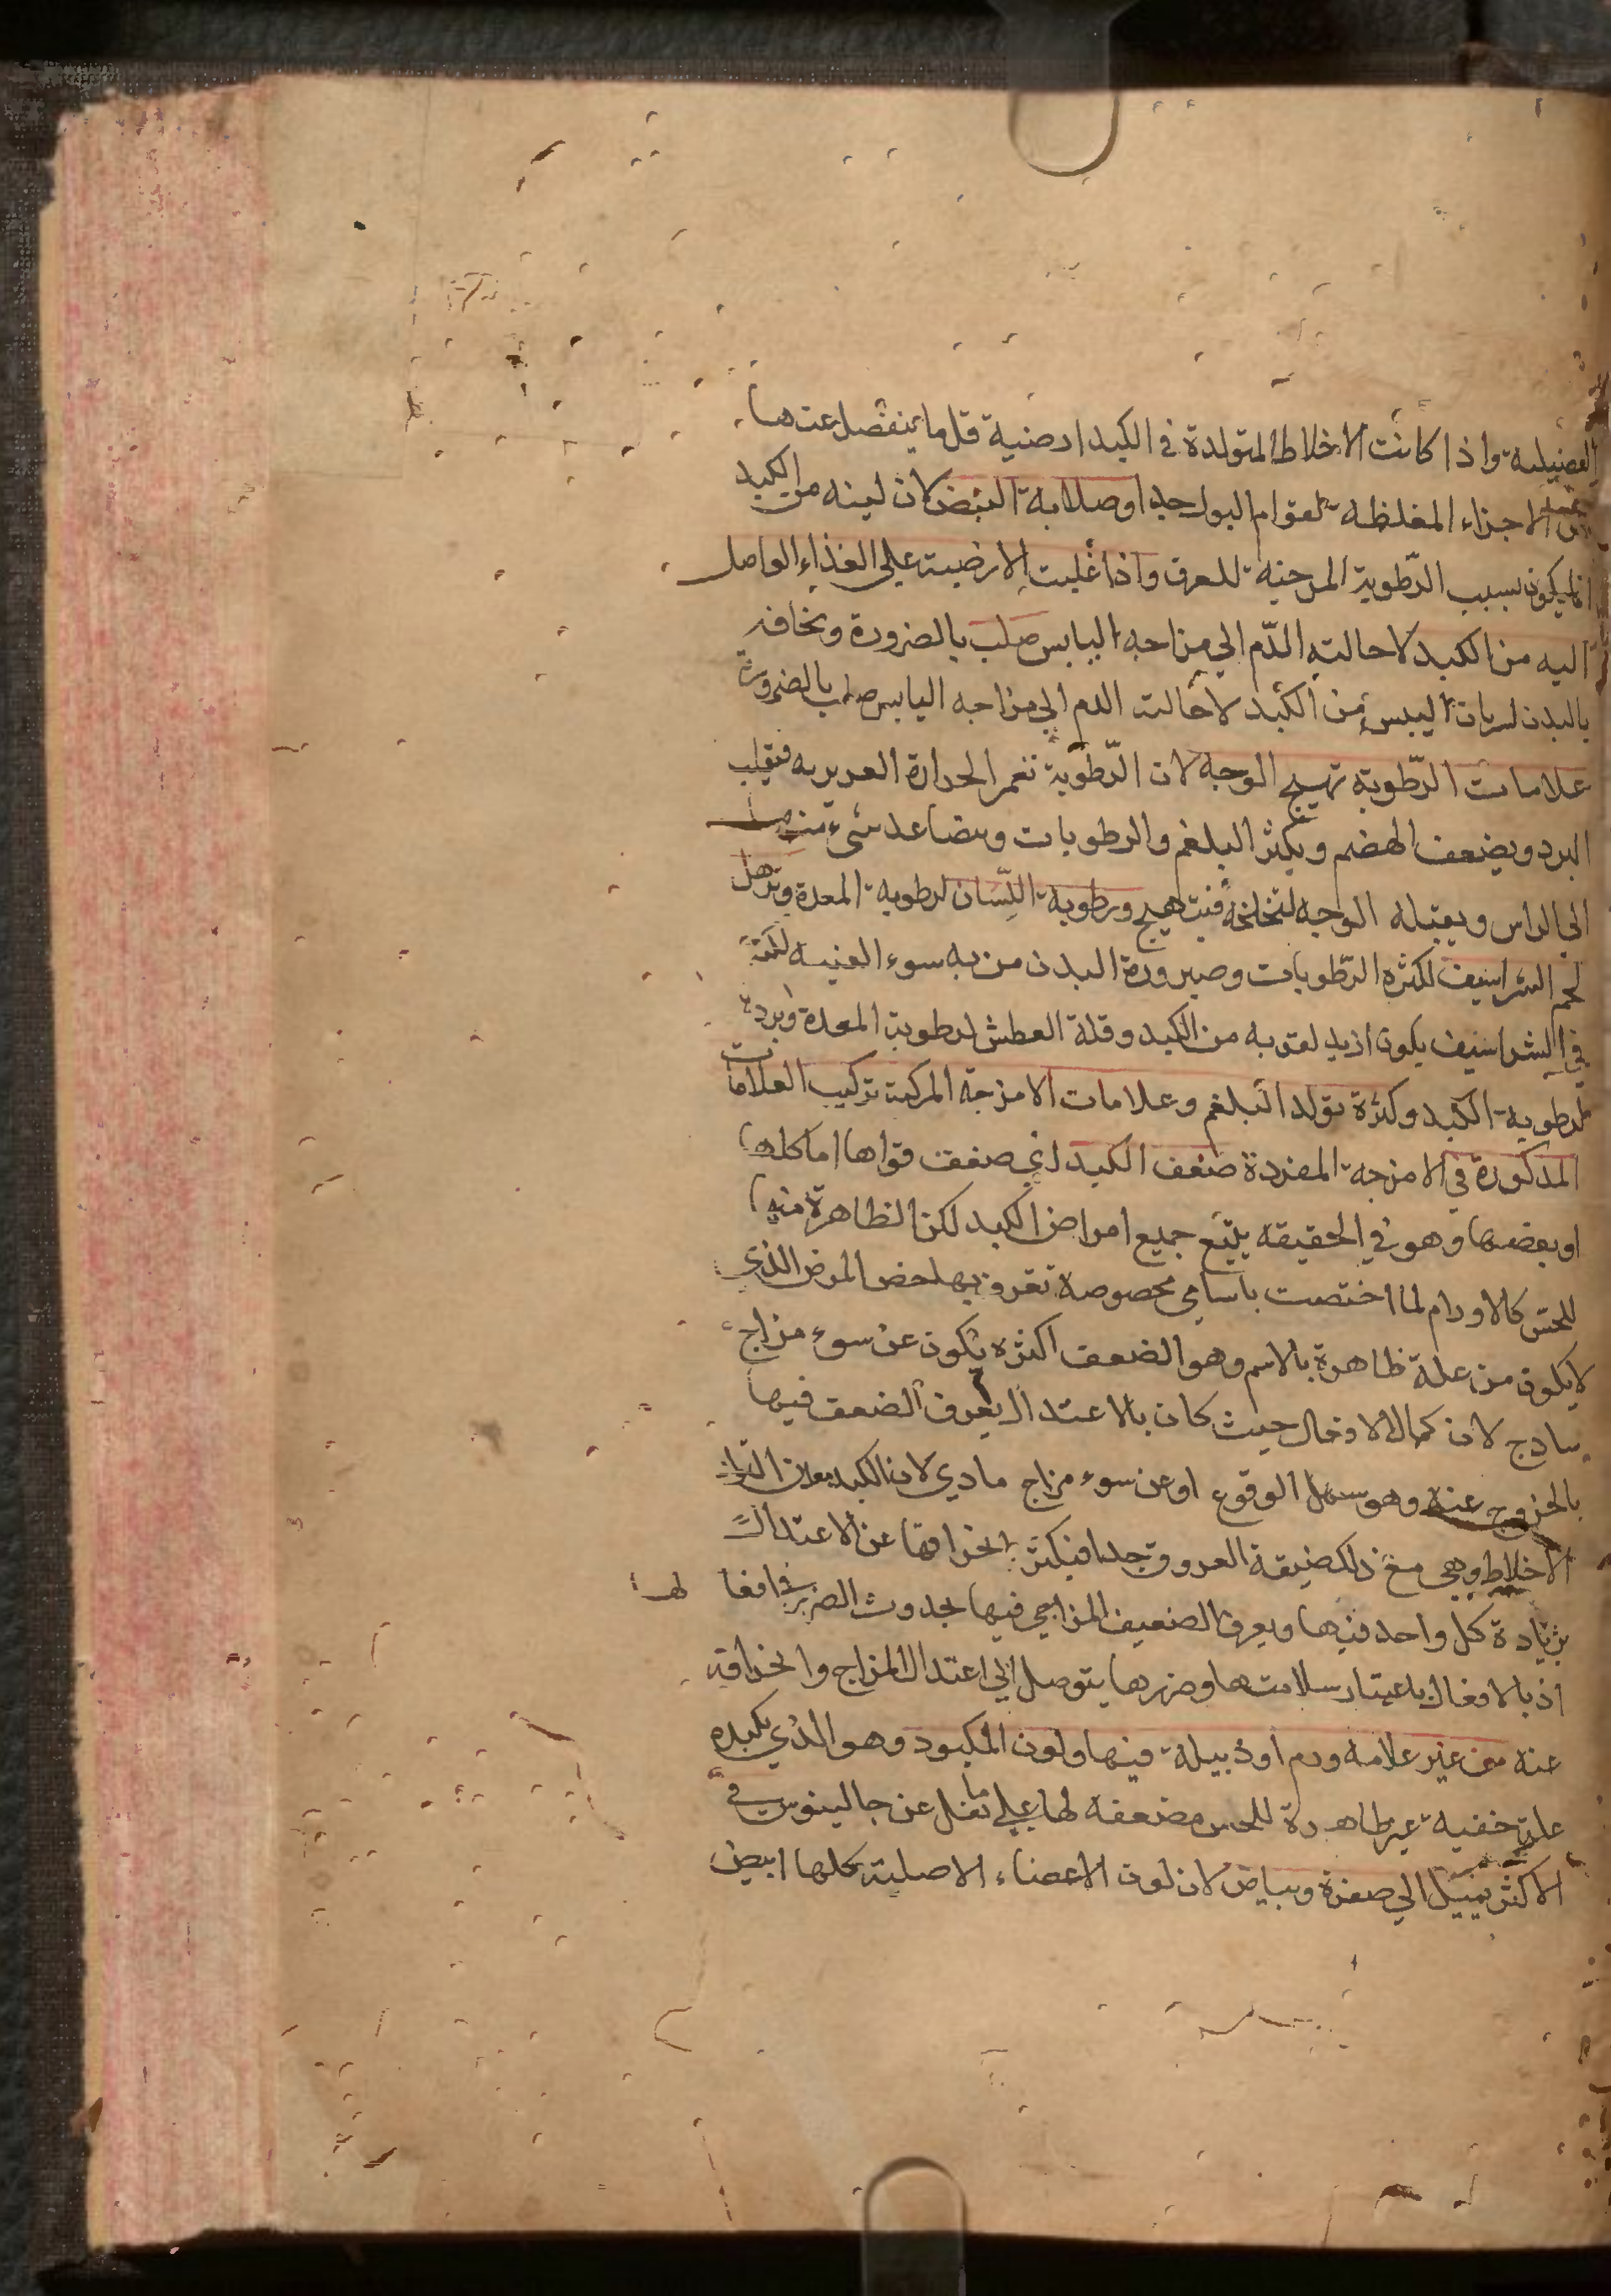 الفضيلية واذا كانت الاخلاط المتولدة في الكبد ارضية قل ما ينفصل عنها
الاجزاء المغلظة لقوام البول جدا وصلابة النبض لان لينه من الكبد
انما يكون بسبب الرّطوبة المرخية للعرق واذا غلبت الارضية على الغذاء الواصل
اليه من الكبد لاحالته الدّم الي مزاجه اليابس صلب بالضرورة ونحافة
بالبدن لسريان اليبس من الكبد لاحالت الدم الي مزاجه اليابس صلب بالضرورة
علامات الرّطوبة تهيج الوجه لان الرّطوبة تغمر الحرارة الغريزيه فيغلب
البرد ويضعف الهضم ويكثر البلغم والرطوبات ويتصاعد شيء منها
الي الراس ويقبله الوجه لتخلخله فيتهيج ورطوبة اللّسان لرطوبة المعدة وترهل
لحم الشراسيف لكثرة الرّطوبات وصيرورة البدن من به سوء القنيه لكنه
في الشراسيف يكون ازيد لقربه من الكبد وقلة العطش لرطوبة المعدة وبردها
لرطوبة الكبد وكثرة تولد البلغم وعلامات الامزجة المركبة تركيب العلامات
المذكورة في الامزجة المفردة ضعف الكبد اي ضعف قواها اما كلها
او بعضها وهو في الحقيقه يتبع جميع امراض الكبد لكن الظاهرة منها
للحس كالاورام لما اختصت باسامي مخصوصة تعرف بها خص المرض الذي
لا يكون من علة ظاهرة بالاسم وهو الضعف اكثره يكون عن سوء مزاج
ساذج لان كمال الافعال حيث كان بالاعتدال يعرف الضعف فيها
بالخروج عنه وهو سهل الوقوع او عن سوء مزاج مادي لان الكبد معدن
الاخلاط وهي مع ذلك ضيقة العروق جدا فيكثر انحرافها عن الاعتدال
بزيادة كل واحد منها ويعرف الضعيف المزاجي فيها بحدوث الضرر في افعالها
اذ بالافعال باعتبار سلامتها وضررها يتوصل الي اعتدال المزاج وانحرافه
عنه من غير علامة ورم او ذبيلة فيها ولون المكبود وهو الذي بكبده
علة خفية غير ظاهرة للحس مضعفة لها علي ما نقل عن جالينوس في
الاكثر يميل الي صفرة وبياض لان لون الاعضاء الاصلية كلها ابيض